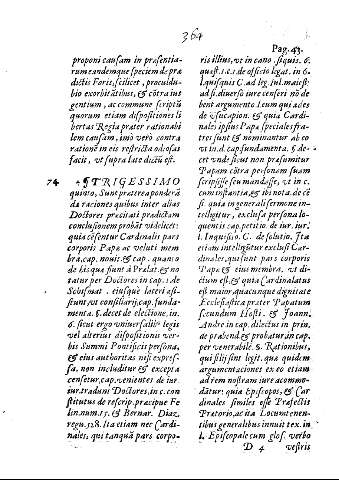 364
Pag. 43.
proponi causam in præsentia-
rum eandemque speciem de præ
dictis Foris, scilicet, præcuidu-
bio exorbitātibus, & cōtra ius
gentium, ac commune scriptū
quorum etiam dispositiones li
bertas Regia præter rationabi
lem causam, imò vero contra
rationē in eis restrictæ odiosas
facit, vt supra late dictū est.
74 ¶ TRIGESSIMO
quinto, Sunt præterea ponderā
dæ rationes quibus inter alias
Doctores præcitati prædictam
conclusionem probāt videlicet:
quia cēsentur Cardinalis pars
corporis Papæ ac veluti mem
bra, cap. nouit, & cap. quanto
de his quæ fiunt à Prælat. & no
tatur per Doctores in cap. 1. de
Schismat. eiusque lateri assi-
stunt, vt consiliarij, cap. funda-
menta. §. decet de electione, in.
6. sicut ergo vniuersalibꝰ legis
vel alterius dispositionis ver-
bis Summi Pontificis persona,
& eius authoritas nisi expres-
sa, non includitur & excepta
censetur, cap. venientes de iur.
iur. tradunt Doctores, in c. con
stitutus de rescrip. præcipue Fe
lin. num. 15. & Bernar. Diaz.
regu. 128. Ita etiam nec Cardi-
nales, qui tanquā pars corpo-
ris illius, vt in cano. siquis. 6.
quæst. 1. c. 1. de officio legat. in 6.
l. quisquis C. ad leg. Iul. maiest.
ad si. diuerso iure censeri nō de
bent argumento l. eum qui ædes
de vsucapion. & quia Cardi-
nales ipsius Papæ speciales fra-
tres sunt & nominantur ab eo
vt in d. cap. fundamenta. §. de-
cet vnde sicut non præsumitur
Papam cōtra personam suam
scripsisse seu mandasse, vt in c.
cum instantia, & ibi nota. de cē
si. quia in generali sermone in-
telligitur, exclusa persona lo-
quentis cap. petitio. de iur. iur.
l. Inquisio. C. de solutio. Ita
etiam intelligitur exclusi Car-
dinales, qui sunt pars corporis
Papæ & eius membra, vt di-
ctum est. & quia Cardinalatus
est maior quacunque dignitate
Ecclesiastica præter Papatum
secundum Hosti. & Ioann.
Andre in cap. dilectus in prin.
de præbend. & probatur in cap.
per venerabile. §. Rationibus,
qui filij sint legit. quæ quidem
argumentationes ex eo etiam
ad rem nostram iure acommo-
dātur: quia Episcopos, & Car
dinales similes esse Præfectis
Prætorio, ac ita Locumtenen-
tibus generalibus innuit tex. in
l. Episcopale cum glos. verbo
D 4 vestris